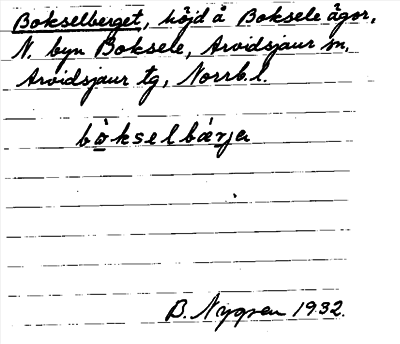 Bokselberget, höjd å Boksele ägor,
N. byn Boksele, Arvidsjaur sn,
Arvidsjaur tg, Norrb. l.
bòkselbærja
B. Nygren 1932.